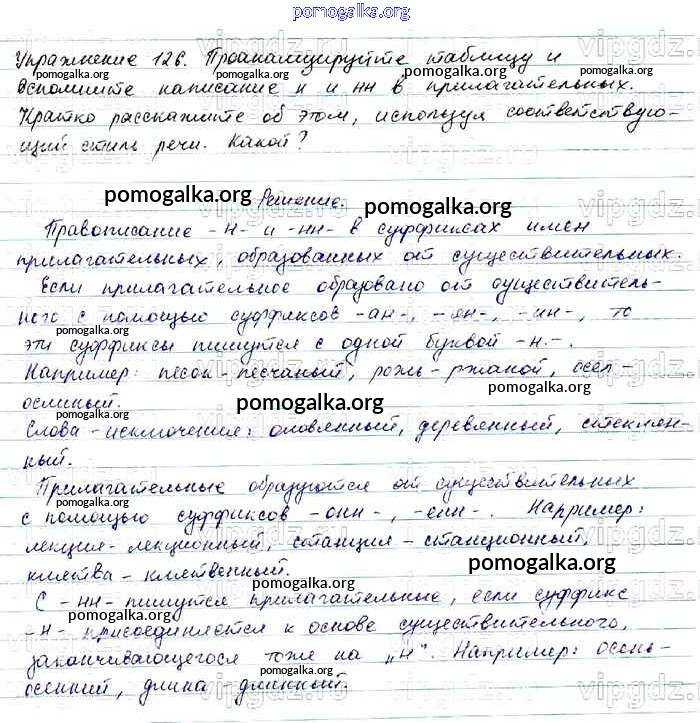 pomogalka.org
Упражнение 126. Проанализируйте таблицу и
вспомните написание н и нн в прилагательных.
Кратко расскажите об этом, используя соответствую-
щий стиль речи. Какой?
Решение.
Правописание -н- и -нн- в суффиксах имен
прилагательных, образованных от существительных.
Если прилагательное образовано от существитель-
ного с помощью суффиксов -ан-, -ян-, -ин-, то
эти суффиксы пишутся с одной буквой -н-.
Например: песок - песчаный, рожь - ржаной, осел -
ослиный.
Слова - исключения: оловянный, деревянный, стеклян-
ный.
Прилагательные образуются от существительных
с помощью суффиксов -онн-, -енн-. Например:
лекция - лекционный, станция - станционный,
клятва - клятвенный.
С -нн- пишутся прилагательные, если суффикс
-н- присоединяется к основе существительного,
заканчивающегося тоже на „н". Например: осень-
осенний, длина - длинный.